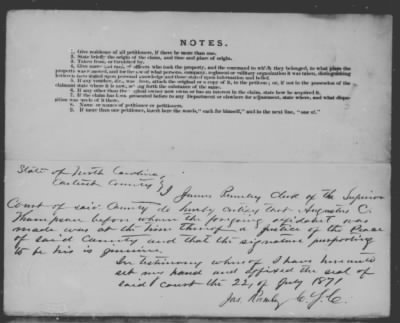 NOTES.
1. Give residence of all petitioners, if there be more than one.
2. State briefly the origin of the claim, and time and place of origin.
3. Taken from, or furnished by.
4. Give name and rank of officers who took the property, and the command to which they belonged, to what place the
property was moved, and for the use of what persons, company, regiment or military organization it was taken, distinguishing
between facts stated upon personal knowledge and those stated upon information and belief.
5. If any voucher, &c., was given, attach the original or a copy of it, to the petition; or, if not in the possession of the
claimant state where it is now, setting forth the substance of the same.
6. If any other than the original owner now owns or has an interest in the claim, state how he acquired it.
7. If the claim has been presented before to any Department or elsewhere for adjustment, state where, and what dispo-
sition was made of it there.
8. Name or names of petitioners or petitioners.
9. If more than one petitioner, insert here the words, "each for himself," and in the next line, "one of."
State of North Carolina,
Carteret County } I James Rumley Clerk of the Superior
Court of said County do hereby certify that Augustus C.
Thompson before whom the forgoing affidavit was
made was at the time thereof a Justice of the Peace
of said County and that the signature purporting
to be his is genuine.
In testimony whereof I have hereunto
set my hand and affixed the seal of
said Court the 22, of July 187
Jas. Rumley C.S.C.